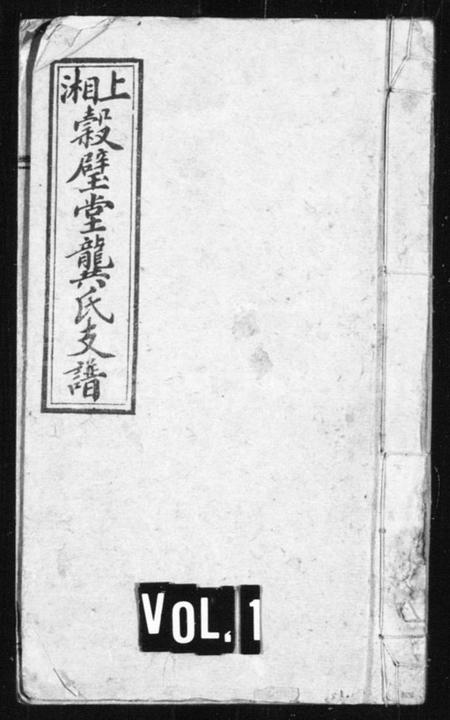 上湘
穀璧堂龔氏支譜
VOL. 1